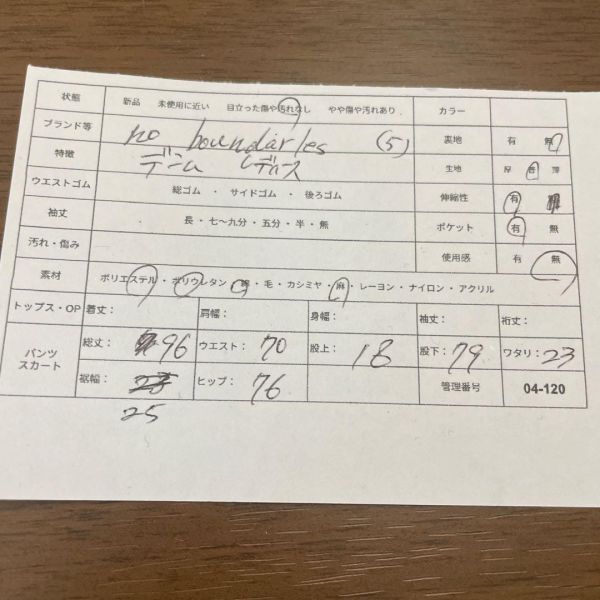 状態 新品 未使用に近い 目立った傷や汚れなし やや傷や汚れあり カラー
ブランド等 no boundaries (5) 裏地 有 無
特徴 デニム レディース 生地 厚 普 薄
ウエストゴム 総ゴム ・ サイドゴム ・ 後ろゴム 伸縮性 有
袖丈 長 ・ 七〜九分 ・ 五分 ・ 半 ・ 無 ポケット 有 無
汚れ・傷み 使用感 有 無
素材 ポリエステル ・ ポリウレタン ・ 綿 ・ 毛 ・ カシミヤ ・ 麻 ・ レーヨン ・ ナイロン ・ アクリル
トップス・OP 着丈： 肩幅： 身幅： 袖丈： 裄丈：
パンツ スカート 総丈： 96 ウエスト： 70 股上： 18 股下： 79 ワタリ： 23
裾幅： 25 ヒップ： 76 管理番号 04-120